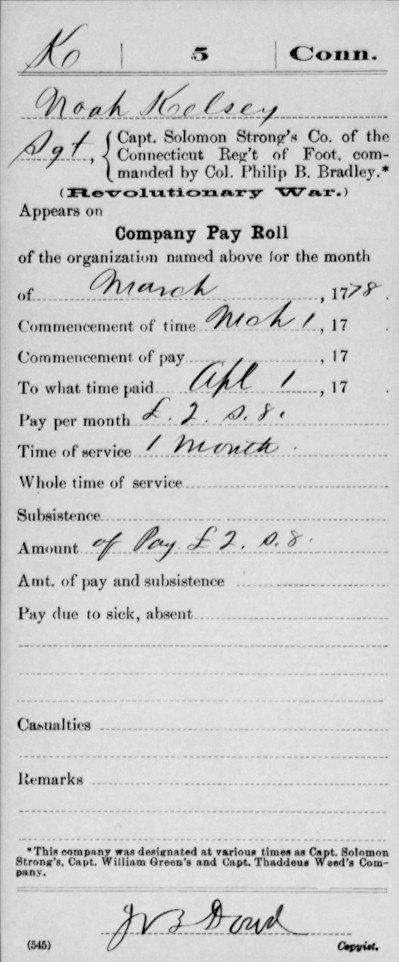 K | 5 | Conn.
Noah Kelsey
Sgt, { Capt. Solomon Strong's Co. of the
Connecticut Reg't of Foot, com-
manded by Col. Philip B. Bradley.*
(Revolutionary War.)
Appears on
Company Pay Roll
of the organization named above for the month
of March, 1778.
Commencement of time Mch 1, 17 .
Commencement of pay , 17 .
To what time paid Apl 1, 17 .
Pay per month £. 2. s. 8.
Time of service 1 Month.
Whole time of service
Subsistence
Amount of Pay £ 2. s. 8.
Amt. of pay and subsistence
Pay due to sick, absent
Casualties
Remarks
*This company was designated at various times as Capt. Solomon
Strong's, Capt. William Green's and Capt. Thaddeus Weed's Com-
pany.
Dowd
(545) Copyist.